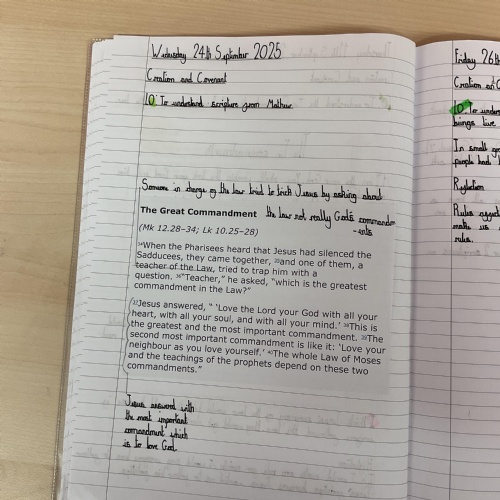 Wednesday 24th September 2025
Creation and Covenant
LO: To understand scripture from Mathew
Someone in charge of the law tried to trick Jesus by asking about
the law not really God's commandm
-ents
The Great Commandment
(Mk 12.28–34; Lk 10.25–28)
34When the Pharisees heard that Jesus had silenced the
Sadducees, they came together, 35and one of them, a
teacher of the Law, tried to trap him with a
question. 36"Teacher," he asked, "which is the greatest
commandment in the Law?"
37Jesus answered, " 'Love the Lord your God with all your
heart, with all your soul, and with all your mind.' 38This is
the greatest and the most important commandment. 39The
second most important commandment is like it: 'Love your
neighbour as you love yourself.' 40The whole Law of Moses
and the teachings of the prophets depend on these two
commandments."
Jesus answerd with
the most important
comandment which
is to love God.
Friday 26th
Creation and C
LO: To unders
beings live
In small gro
people had
Reflection
Rules affect
make us
rules.